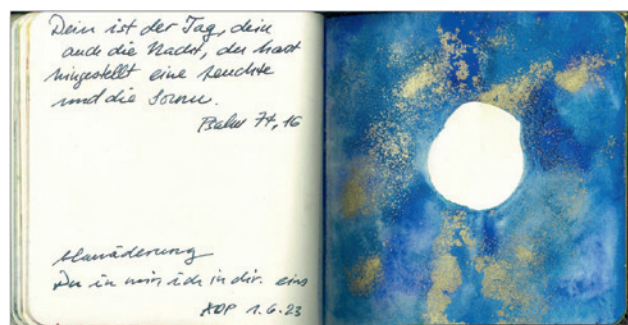 Dein ist der Tag, dein
auch die Nacht, du hast
hingestellt eine Leuchte
und die Sonne.
Psalm 74, 16
Blauäderung
Du in mir ich in dir. eins
XOP 1.6.23